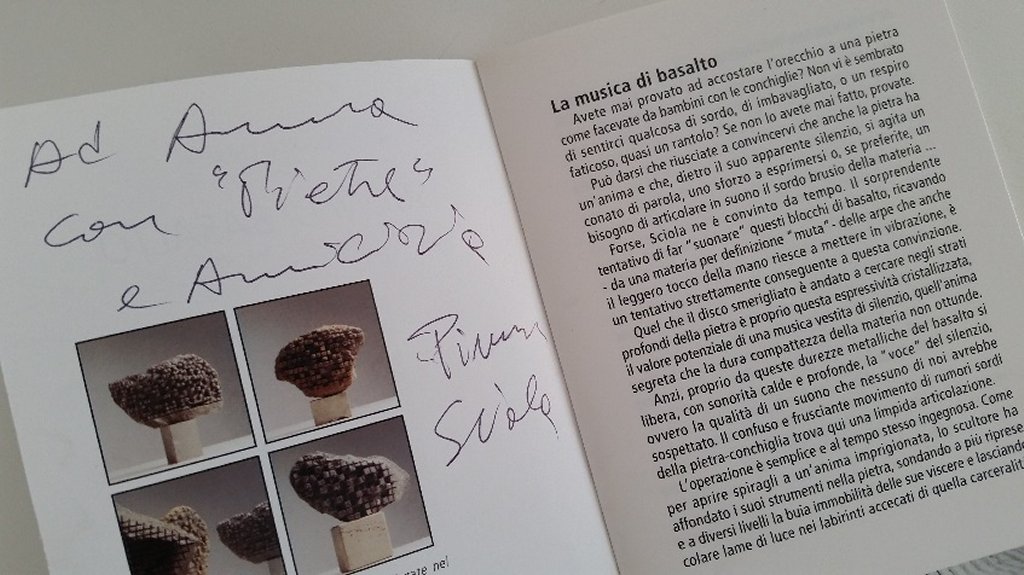 Ad Anna
con "Pietre"
e Amicizia
Pinuccio
Sciola
ate nel
La musica di basalto
Avete mai provato ad accostare l'orecchio a una pietra
come facevate da bambini con le conchiglie? Non vi è sembrato
di sentirci qualcosa di sordo, di imbavagliato, o un respiro
faticoso, quasi un rantolo? Se non lo avete mai fatto, provate.
Può darsi che riusciate a convincervi che anche la pietra ha
un'anima e che, dietro il suo apparente silenzio, si agita un
conato di parola, uno sforzo a esprimersi o, se preferite, un
bisogno di articolare in suono il sordo brusio della materia ...
Forse, Sciola ne è convinto da tempo. Il sorprendente
tentativo di far "suonare" questi blocchi di basalto, ricavando
- da una materia per definizione "muta" - delle arpe che anche
il leggero tocco della mano riesce a mettere in vibrazione, è
un tentativo strettamente conseguente a questa convinzione.
Quel che il disco smerigliato è andato a cercare negli strati
profondi della pietra è proprio questa espressività cristallizzata,
il valore potenziale di una musica vestita di silenzio, quell'anima
segreta che la dura compattezza della materia non ottunde.
Anzi, proprio da queste durezze metalliche del basalto si
libera, con sonorità calde e profonde, la "voce" del silenzio,
ovvero la qualità di un suono che nessuno di noi avrebbe
sospettato. Il confuso e frusciante movimento di rumori sordi
della pietra-conchiglia trova qui una limpida articolazione.
L'operazione è semplice e al tempo stesso ingegnosa. Come
per aprire spiragli a un'anima imprigionata, lo scultore ha
affondato i suoi strumenti nella pietra, sondando a più riprese
e a diversi livelli la buia immobilità delle sue viscere e lasciando
colare lame di luce nei labirinti accecati di quella carceralit